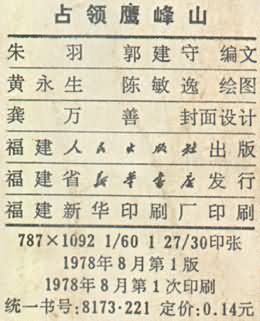 占领鹰峰山
朱羽 郭建守 编文
黄永生 陈敏逸 绘图
龚万善 封面设计
福建人民出版社出版
福建省新华书店发行
福建新华印刷厂印刷
787×1092 1/60 1 27/30印张
1978年8月第1版
1978年8月第1次印刷
统一书号:8173·221 定价:0.14元